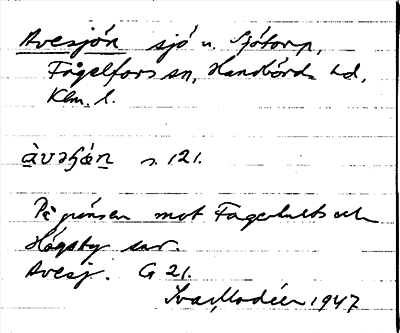 Avesjön sjö n. Sjötorp,
Fågelfors sn, Handbörds hd,
Klm. l.
àvəʃǿn s. 121.
På gränsen mot Fagerhults och
Högsby snr.
Avesj. G 21.
Ivar Modéer 1947